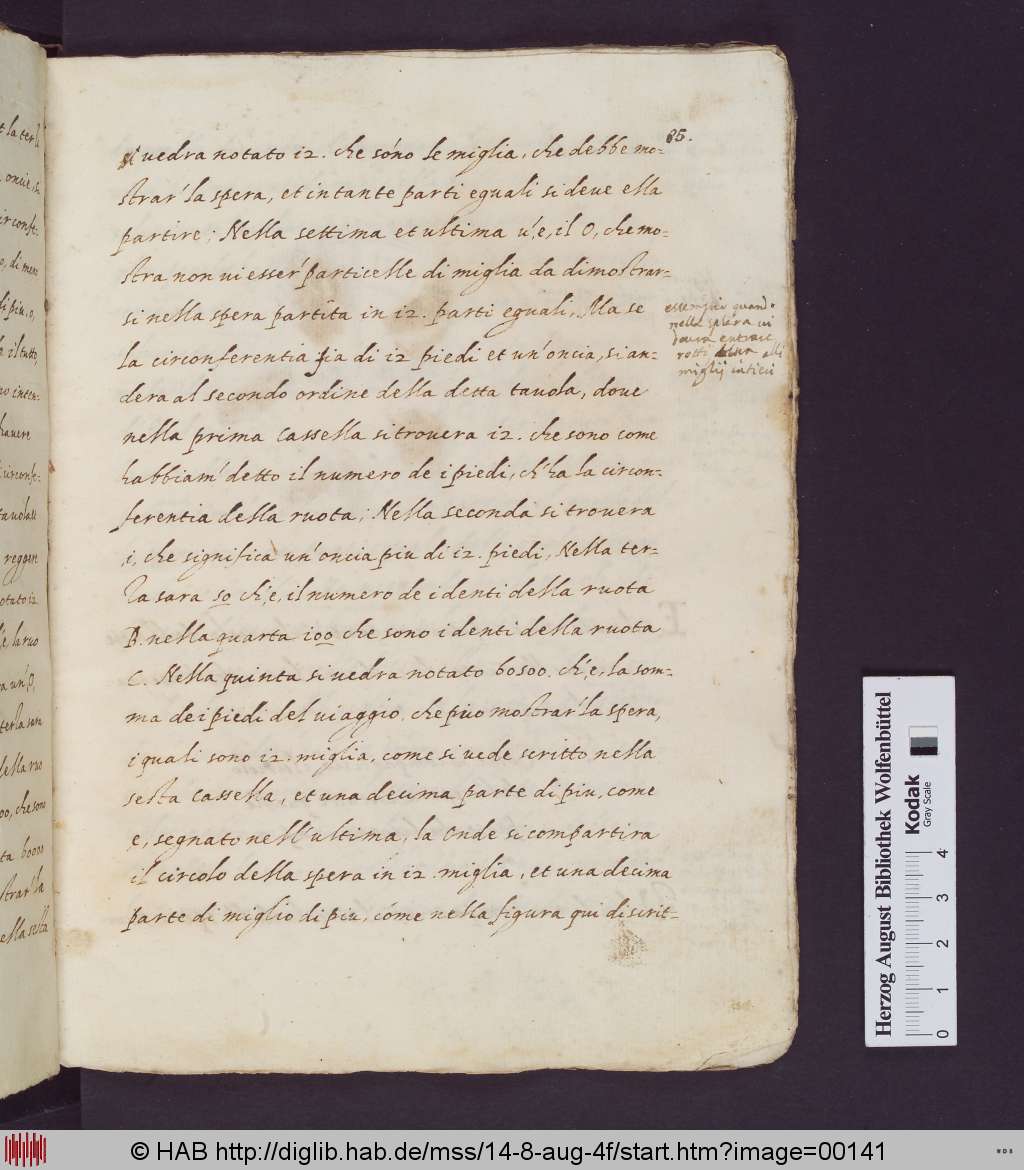 85.
si uedra notato 12. che sóno le miglia, che debbe mo-
strar' la spera, et in tante parti eguali si deue ella
partire; Nella settima et ultima u', e, il O, che mo-
stra non ui esser' particelle di miglia da dimostrar-
si nella spera partita in 12. parti eguali, Ma se
la circonferentia sia di 12 piedi et un'oncia, si an-
dera al secondo ordine della detta tauola, doue
nella prima Cassella si trouera 12. che sono come
habbiam' detto il numero de i piedi, ch'ha la circon-
ferentia della ruota; Nella seconda si trouera
,i, che significa un'oncia piu di 12. piedi, Nella ter-
za sara 50 ch', e, il numero de i denti della ruota
B. nella quarta 100 che sono i denti della ruota
C. Nella quinta si uedra notato 60500. ch', e, la som-
ma de i piedi del uiaggio. che puo mostrar' la spera,
i quali sono 12. miglia, come si uede scritto nella
sesta Cassella, et una decima parte di piu, come
e, segnato nell'ultima, la Onde si compartira
il circolo della spera in 12. miglia, et una decima
parte di miglio di piu, cóme nella figura qui discrit-
essempio quand°
nella spera ui
entrare
rotti alli
miglij
t la ter
oncie, si
ir confe-
di piu, o,
il tutto,
no inten-
hauere
circonfe-
tauola
reggen
otato 12
e, la ruo
a un' O,
ter la sara
della ruo
oo, che sono
ta 60000
strar' la
ella sesta
Herzog August Bibliothek Wolfenbüttel
Kodak
Gray Scale
0 1 2 3 4
© HAB http://diglib.hab.de/mss/14-8-aug-4f/start.htm?image=00141